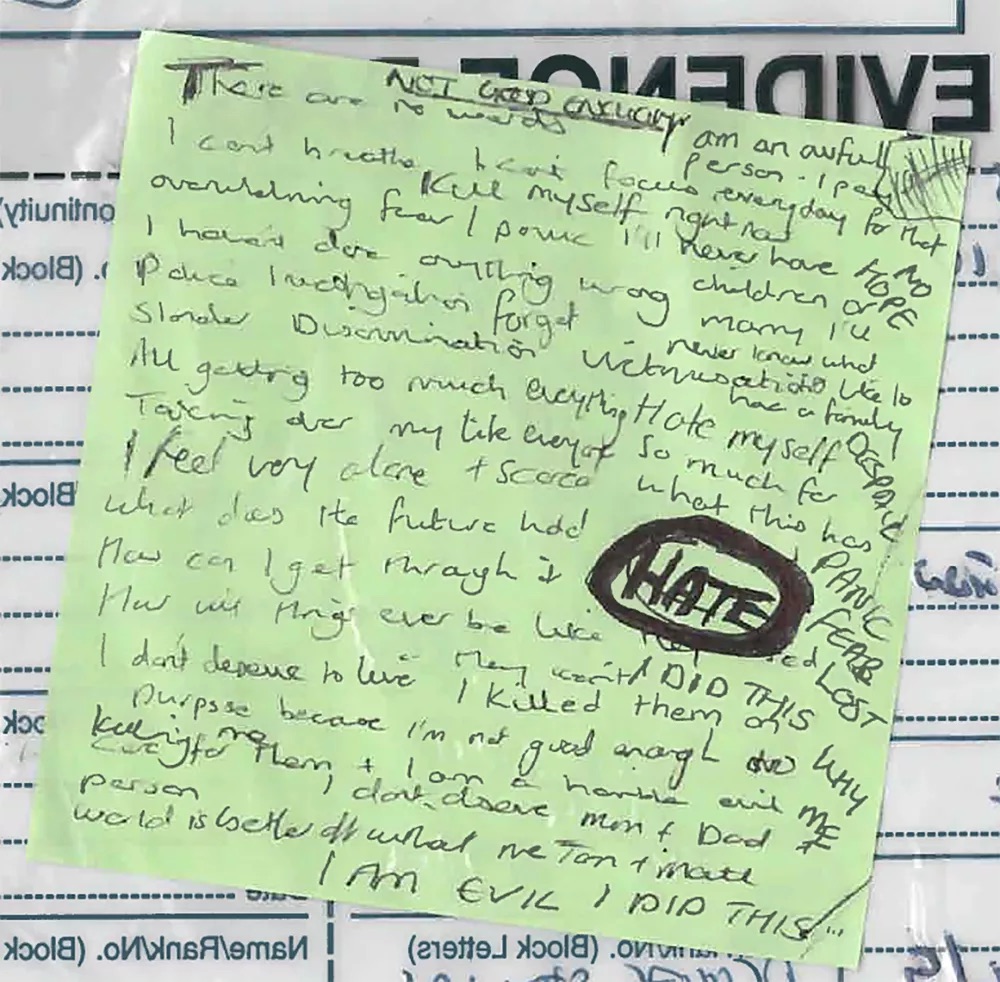 EVIDENCE
NOT GOOD ENOUGH
There are no words
I am an awful person - I pay everyday for that
I can't breathe I can't focus
Kill myself right now
overwhelming fear / panic I'll never have
NO HOPE
I haven't done anything wrong children or
Police Investigation forget marry I'll
never know what
Slander Discrimination Victimisation like to
have a family
All getting too much everything Hate myself
DESPAIR
Taking over my life everyone so much for
I feel very alone + scared what this has
what does the future hold
How can I get through it
HATE
PANIC
FEAR
LOST
How will things ever be like
I don't deserve to live They won't I DID THIS
I killed them on
purpose because I'm not good enough to
WHY ME
killing me
care for them + I am a horrible evil
person I don't deserve mum + Dad
world is better off without me
I AM EVIL I DID THIS
(Continuity)
No. (Block
Block
Block
Date
Name/Rank/No. (Block
Rank/No. (Block Letters)